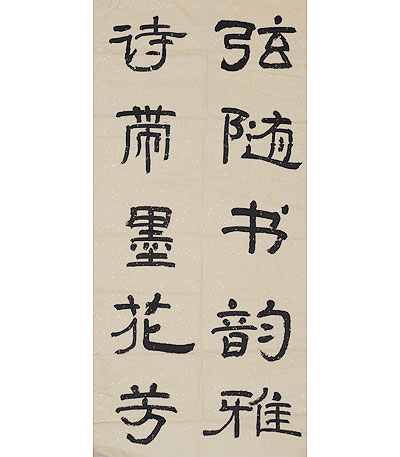 弦随书韵雅
诗带墨花芳